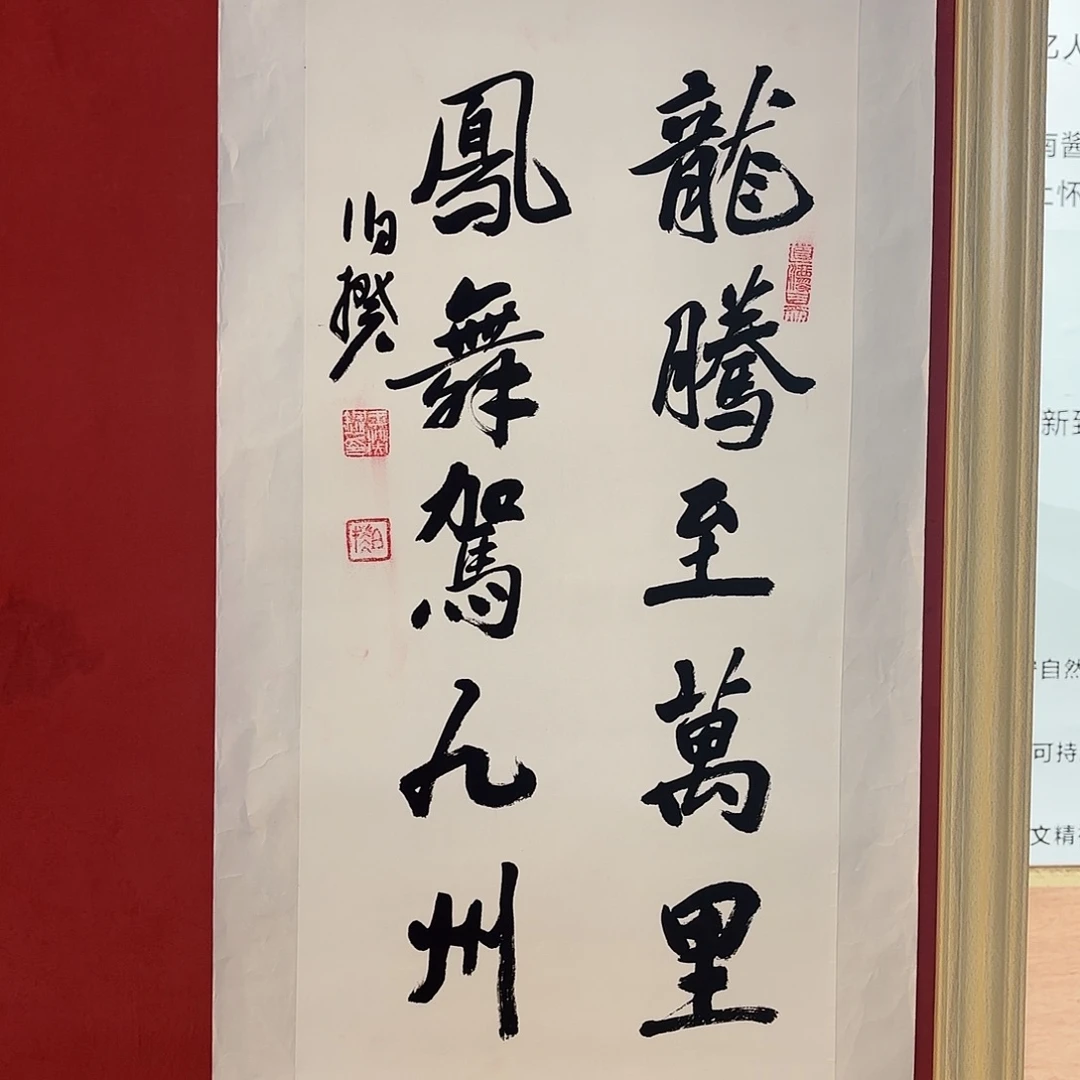 龍騰至萬里
鳳舞駕九州
伯揆
亿人
南酱
士怀
新
自然
可持
文精